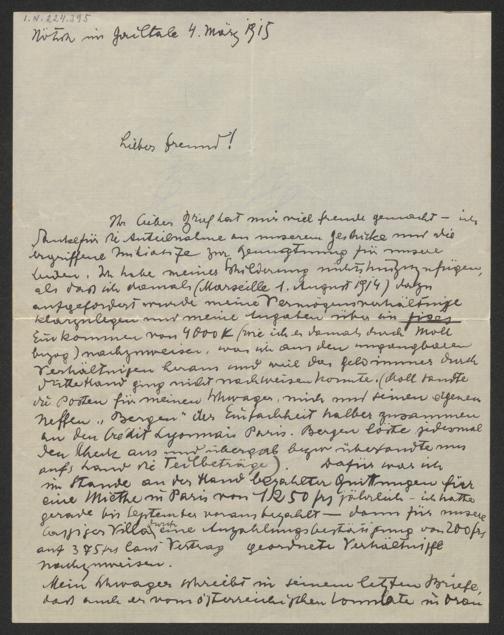 I.N. 224.395
Nötsch im Gailtale 4. März 1915
Lieber Freund!
Ihr lieber Brief hat mir viel Freude gemacht – ich
danke für die Anteilnahme an unserem Geschicke und die
ergriffene Initiative zur Genugtuung für unsere
Leiden. Ich habe meiner Schilderung nichts hinzuzufügen,
als daß ich damals (Marseille 1. August 1914) dazu
aufgefordert wurde meine Vermögensverhältnisse
klarzulegen und meine Angaben über ein fixes
Einkommen von 4000 K (wie ich es damals durch Moll
bezog) nachzuweisen, was ich aus den unhaltbaren
Verhältnissen heraus und weil das Geld immer durch
dritte Hand ging nicht nachweisen konnte. (Moll sandte
die Posten für meinen Schwager, mich und seinen eigenen
Neffen „Bergen" der Einfachheit halber zusammen
an den Crédit Lyonnais Paris. Bergen löste jedesmal
den Check aus und übergab bezw. übersandte uns
aufs Land die Teilbeträge). Dafür war ich
im Stande an der Hand bezahlter Quittungen für
eine Miethe in Paris von 1250 frs jährlich – ich hatte
gerade bis September vorausbezahlt – dann für unsere
Cassiser Villa durch eine Anzahlungsbestätigung von 200 frs
auf 385 frs laut Vertrag geordnete Verhältnisse
nachzuweisen.
Mein Schwager schreibt in seinem letzten Briefe,
daß auch er vom österreichischen Consulate in Oran